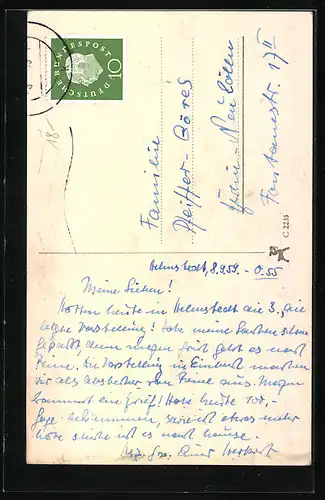 DEUTSCHE BUNDESPOST
10
18-
Familie
Pfeiffer-Böres
Berlin-Neukölln
Fontanestr. 17 II
C 2235
Helmstedt, 8.9.59. - 0.55
Meine Lieben!
Hatten heute in Helmstedt die 3., die
letzte Vorstellung! Habe meine Sachen schon
gepackt, denn morgen früh geht es nach
Peine. Die Vorstellung in Einbeck machen
wir als Abstecher von Peine aus. Morgen
kommt ein Brief! Habe heute 100,-
Gage bekommen,